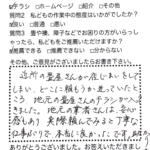 ☑チラシ □ホームページ □紹介 □その他
質問2 私どもの作業中の態度はいかがでしたか？
☑良い □普通 □悪い
質問3 畳や襖、障子などでお困りの方がいらっし
ゃったら、私どもをご推薦いただけますか？
☑推薦できる □推薦できない □分からない
その他、ご意見がございましたらお書き下さい。
近所の畳屋さんが店じまいをして
しまい、どこに頼もうか迷っていたと
ころ 地元の畳屋さんのチラシが入って
きました。地元の業者さんは、安心
感もあり 実際頼んでみると丁寧な
仕事ぶりで、本当に良かったです。
ありがとうございました。お答えいただきまして